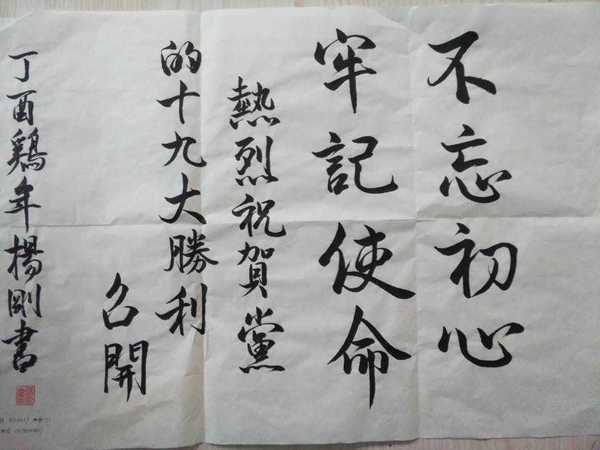 不忘初心
牢記使命
熱烈祝賀黨
的十九大勝利
召開
丁酉鷄年楊剛書